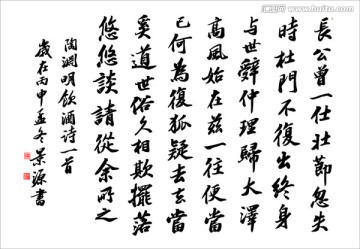 長公曾一仕壯節忽失
時杜門不復出終身
與世辭仲理歸大澤
高風始在茲一往便當
已何為復狐疑去去當
奚道世俗久相欺擺落
悠悠談請從余所之
陶淵明飲酒诗一首
歲在丙申孟冬景源書